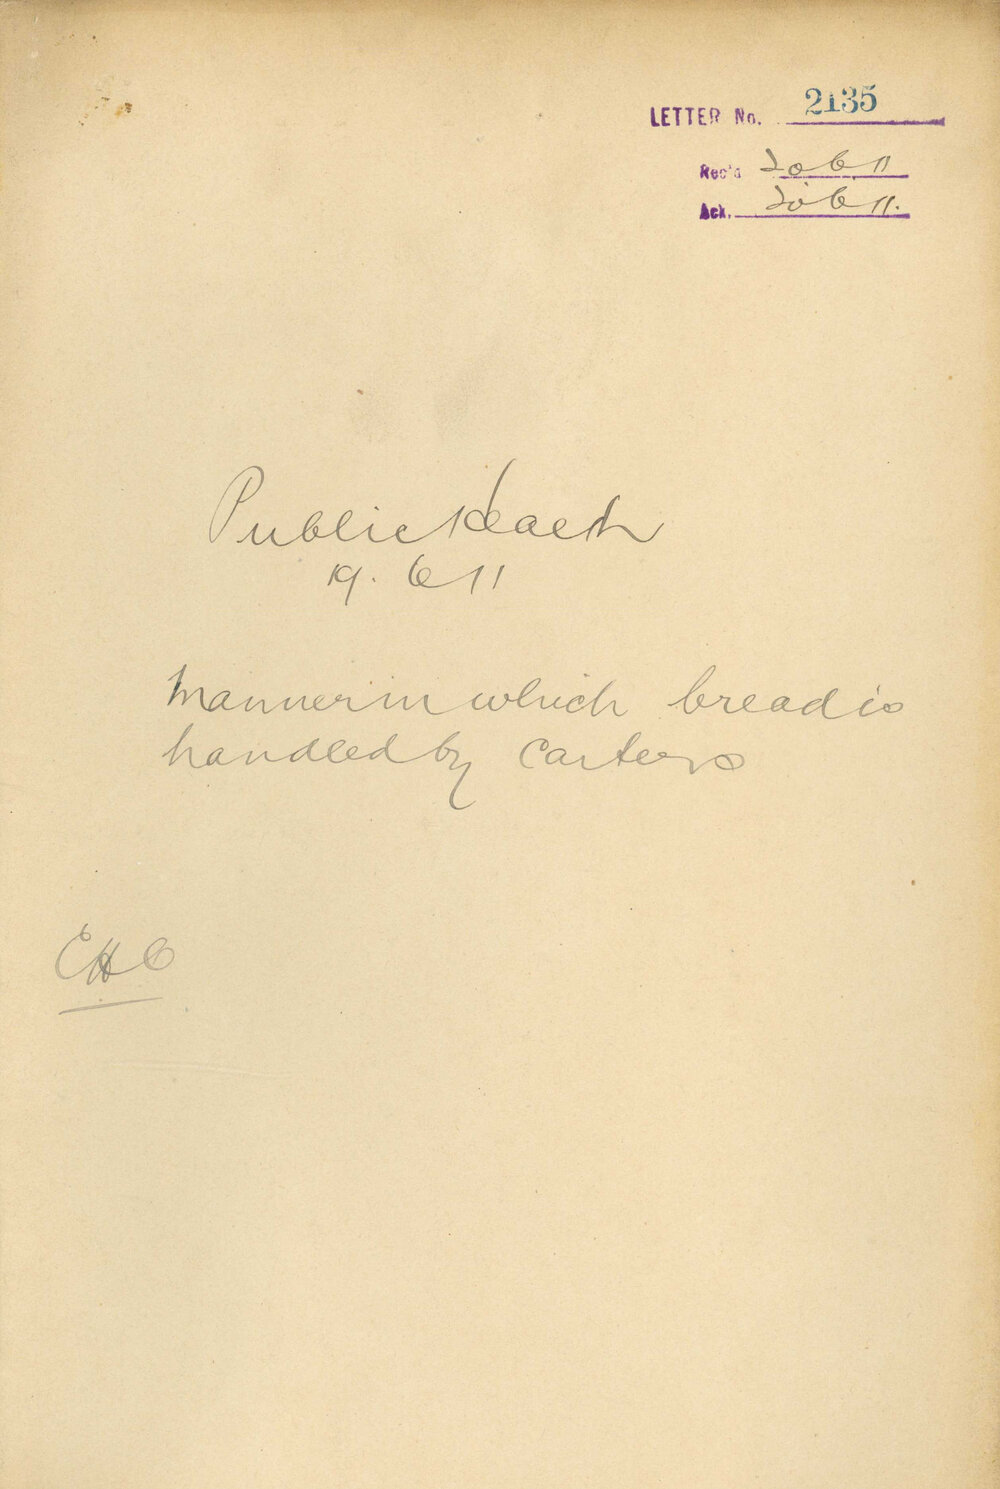 LETTER No. 2135
Rec'd 20 6 11
Ack. 20 6 11.
Public Health
19. 6 11
Manner in which bread is
handled by Carters
EHC